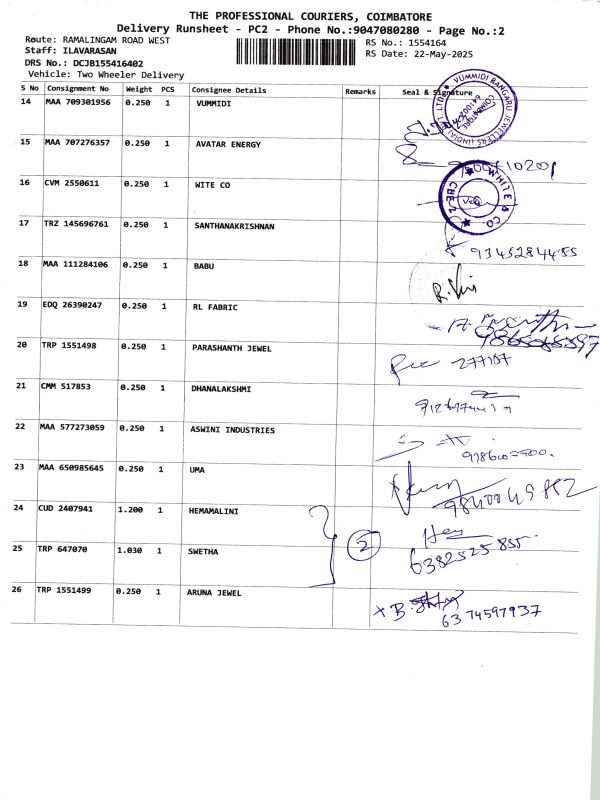 THE PROFESSIONAL COURIERS, COIMBATORE
Delivery Runsheet - PC2 - Phone No.:9047080280 - Page No.:2
Route: RAMALINGAM ROAD WEST
RS No.: 1554164
Staff: ILAVARASAN
RS Date: 22-May-2025
DRS No.: DCJB155416402
Vehicle: Two Wheeler Delivery
S No Consignment No Weight PCS Consignee Details Remarks Seal & Signature
14 MAA 709301956 0.250 1 VUMMIDI
VUMMIDI BANGARU JEWELLERS (INDIA) PVT. LTD.
COIMBATORE
15 MAA 707276357 0.250 1 AVATAR ENERGY
16 CVM 2550611 0.250 1 WITE CO
WHITE & CO. CBE
17 TRZ 145696761 0.250 1 SANTHANAKRISHNAN
9345284455
18 MAA 111284106 0.250 1 BABU
19 EDQ 26390247 0.250 1 RL FABRIC
20 TRP 1551498 0.250 1 PARASHANTH JEWEL
21 CMM 517853 0.250 1 DHANALAKSHMI
22 MAA 577273059 0.250 1 ASWINI INDUSTRIES
23 MAA 650985645 0.250 1 UMA
24 CUD 2407941 1.200 1 HEMAMALINI
2
6382525855
25 TRP 647070 1.030 1 SWETHA
26 TRP 1551499 0.250 1 ARUNA JEWEL
6374597937